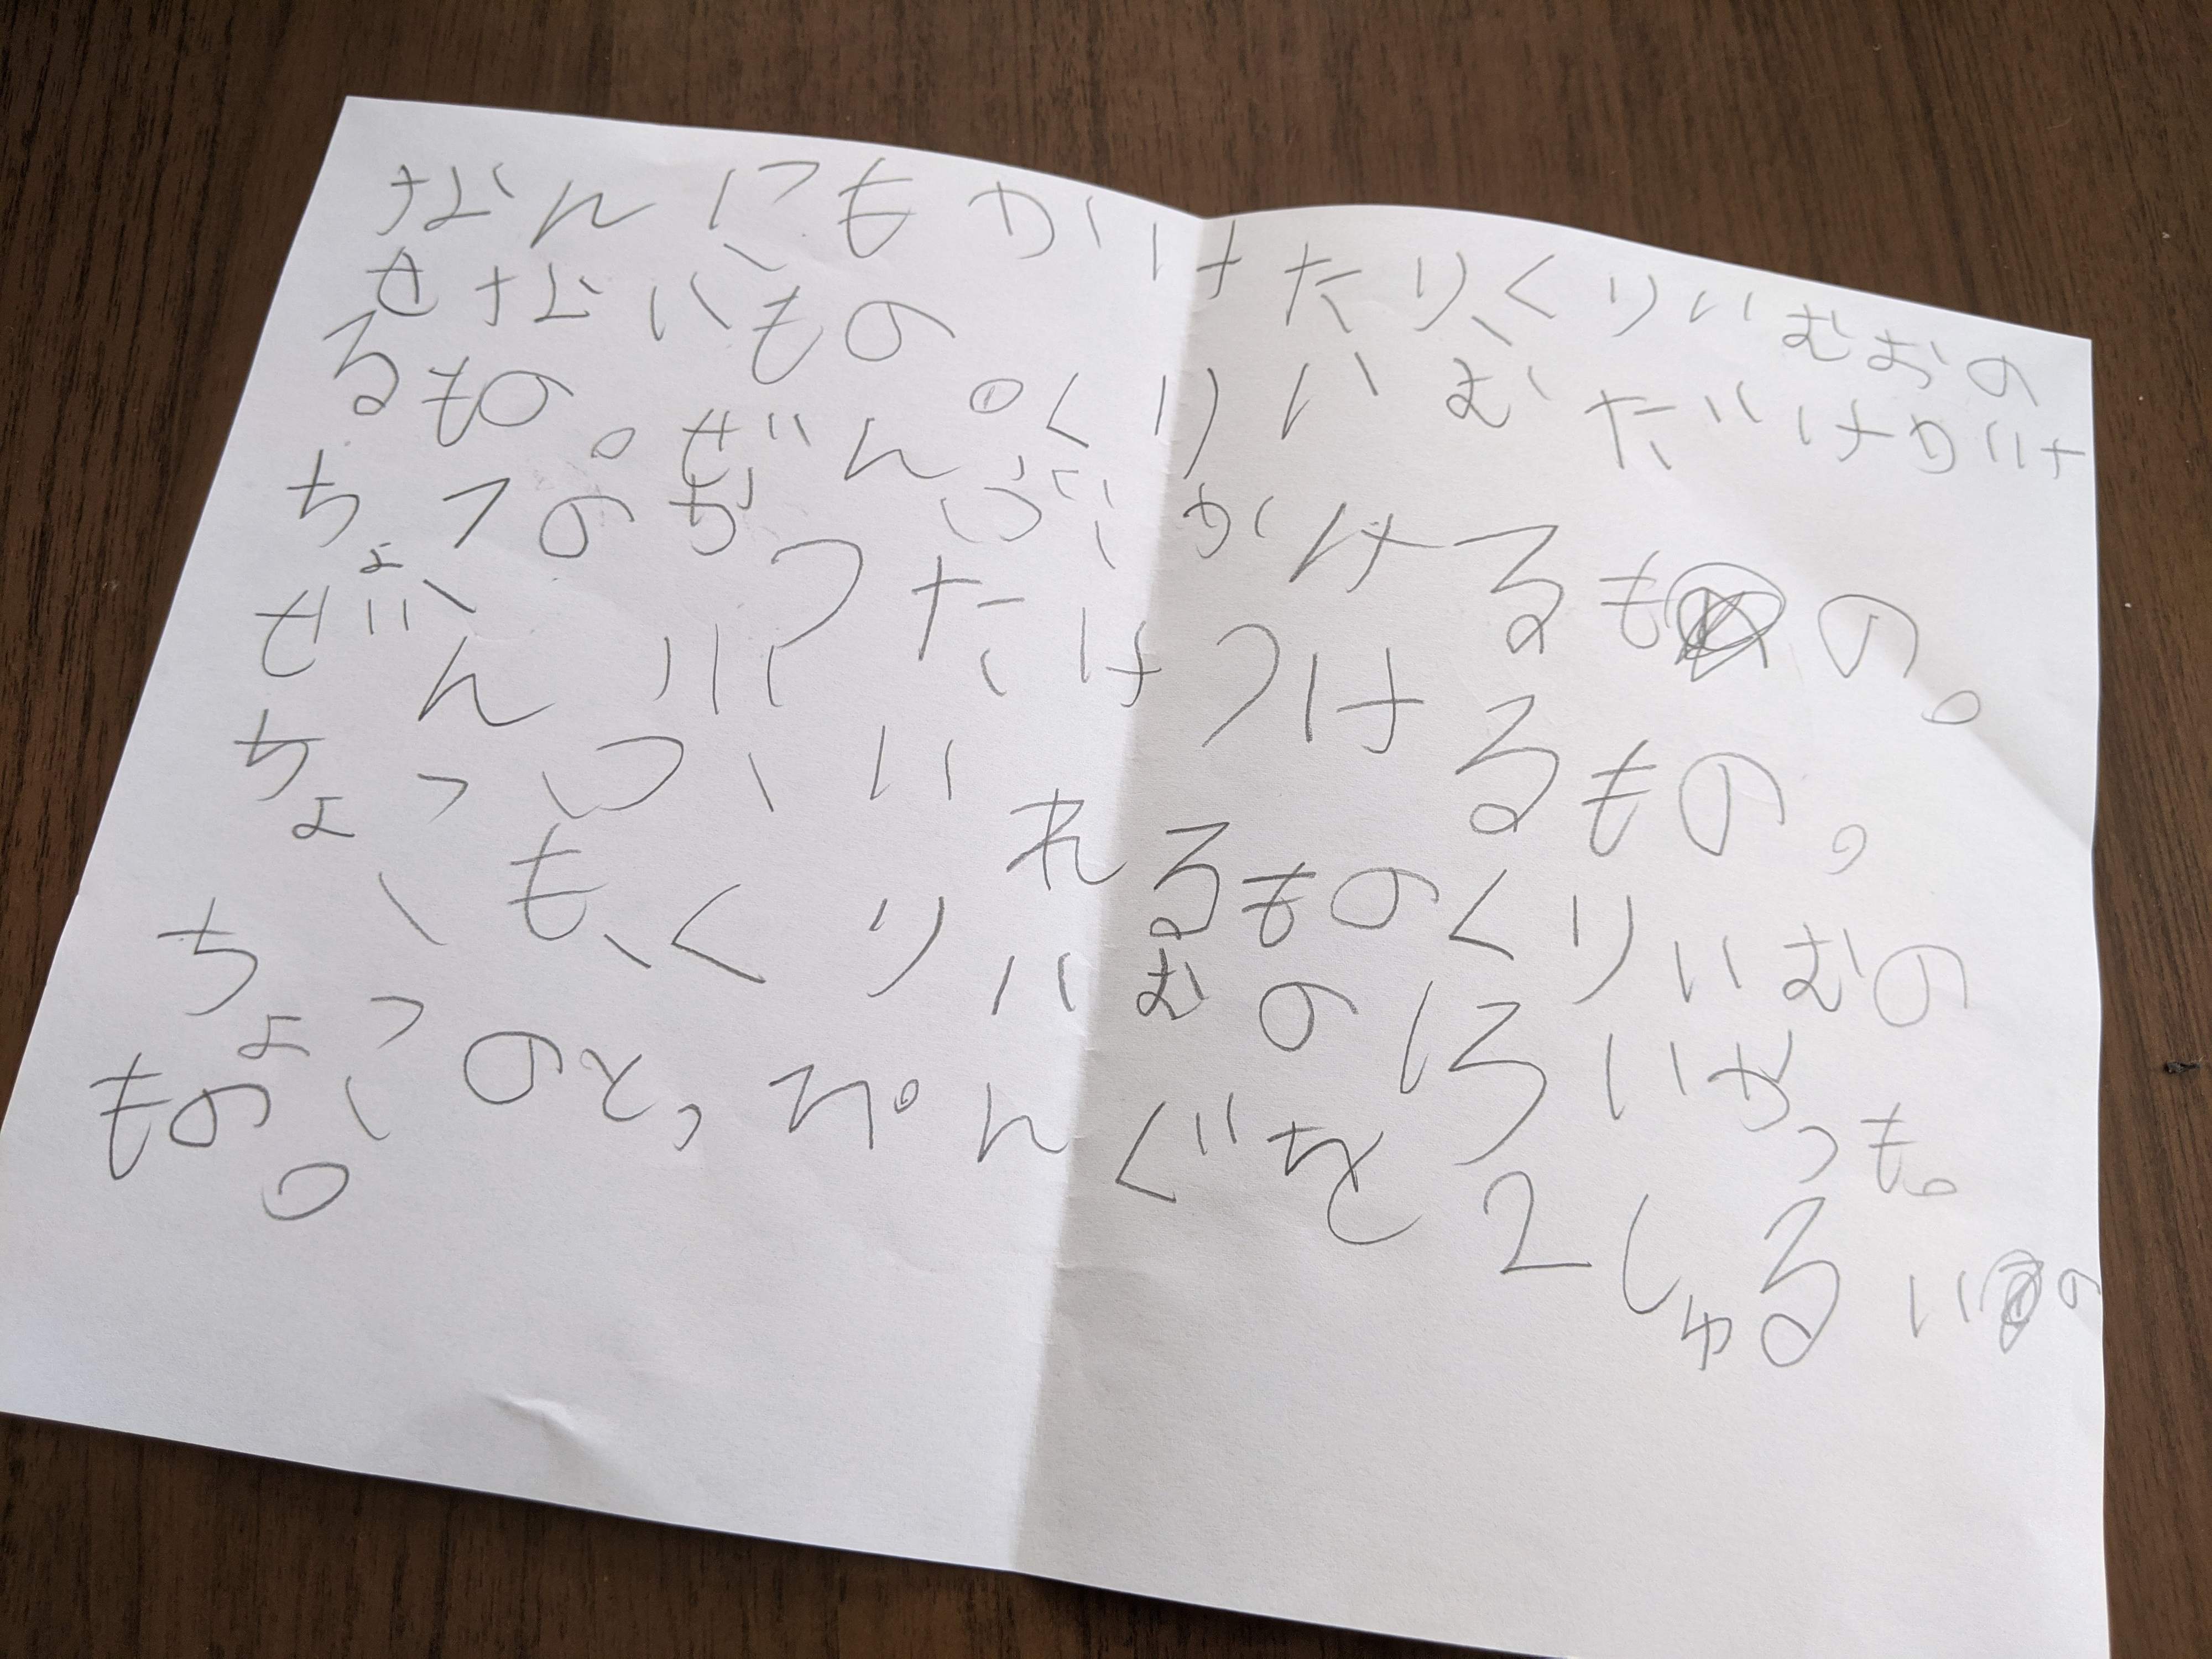 なんにもかけたり、くりいむおの
せないもの。くりいむだけかけ
るもの。ぜんぶ、かけるもの。
ちょこの だけつけるもの。
ぜんぶいれるものくりいむの
ちょこも、くりいむのしろいやつも。
ちょこのとっぺんぐを2しゅるいの
もの。